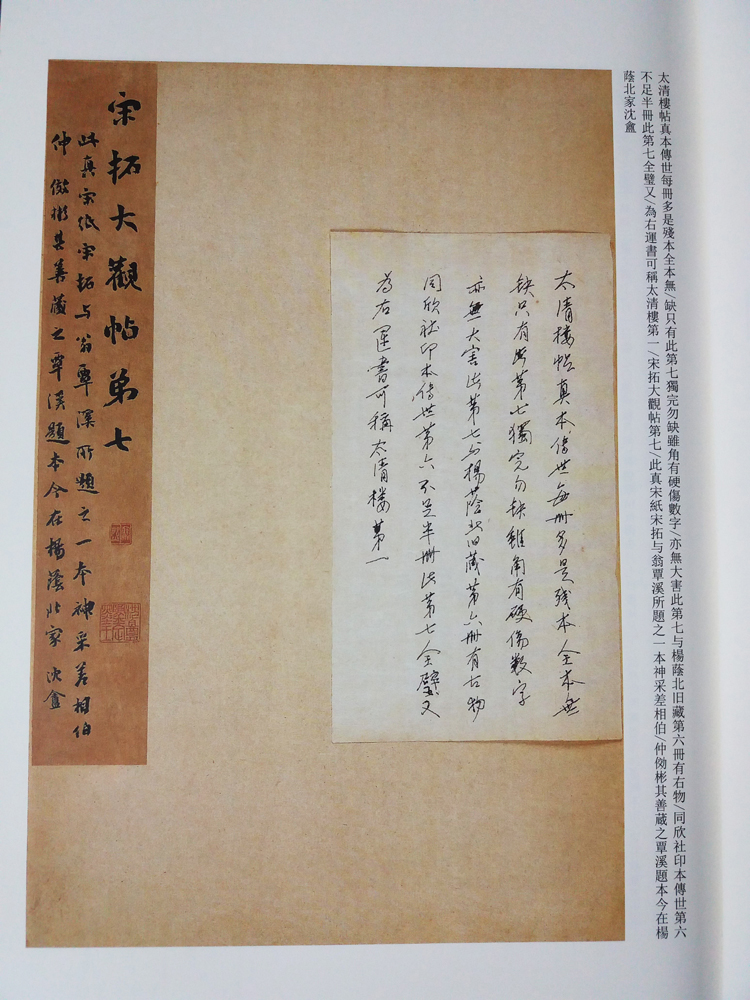 太清樓帖真本傳世每冊多是殘本全本無/缺只有此第七獨完勿缺雖角有硬傷數字/亦無大害此第七与楊蔭北旧藏第六冊有右物/同欣社印本傳世第六
不足半冊此第七全璧又/為右運書可稱太清樓第一/宋拓大觀帖第七/此真宋紙宋拓与翁覃溪所題之一本神采差相伯/仲彬其善蔵之覃溪題本今在楊
蔭北家沈盦
太清樓帖真本傳世每冊多是残本全本無
缺只有此第七獨完勿缺雖角有硬傷数字
亦無大害此第七与楊蔭北旧藏第六冊有古物
同欣社印本傳世第六不足半冊此第七全璧又
為右運書可稱太清楼第一
宋拓大觀帖弟七
此真宋紙宋拓与翁覃溪所題之一本神采差相伯
仲彬其善藏之覃溪題本今在楊蔭北家沈盦